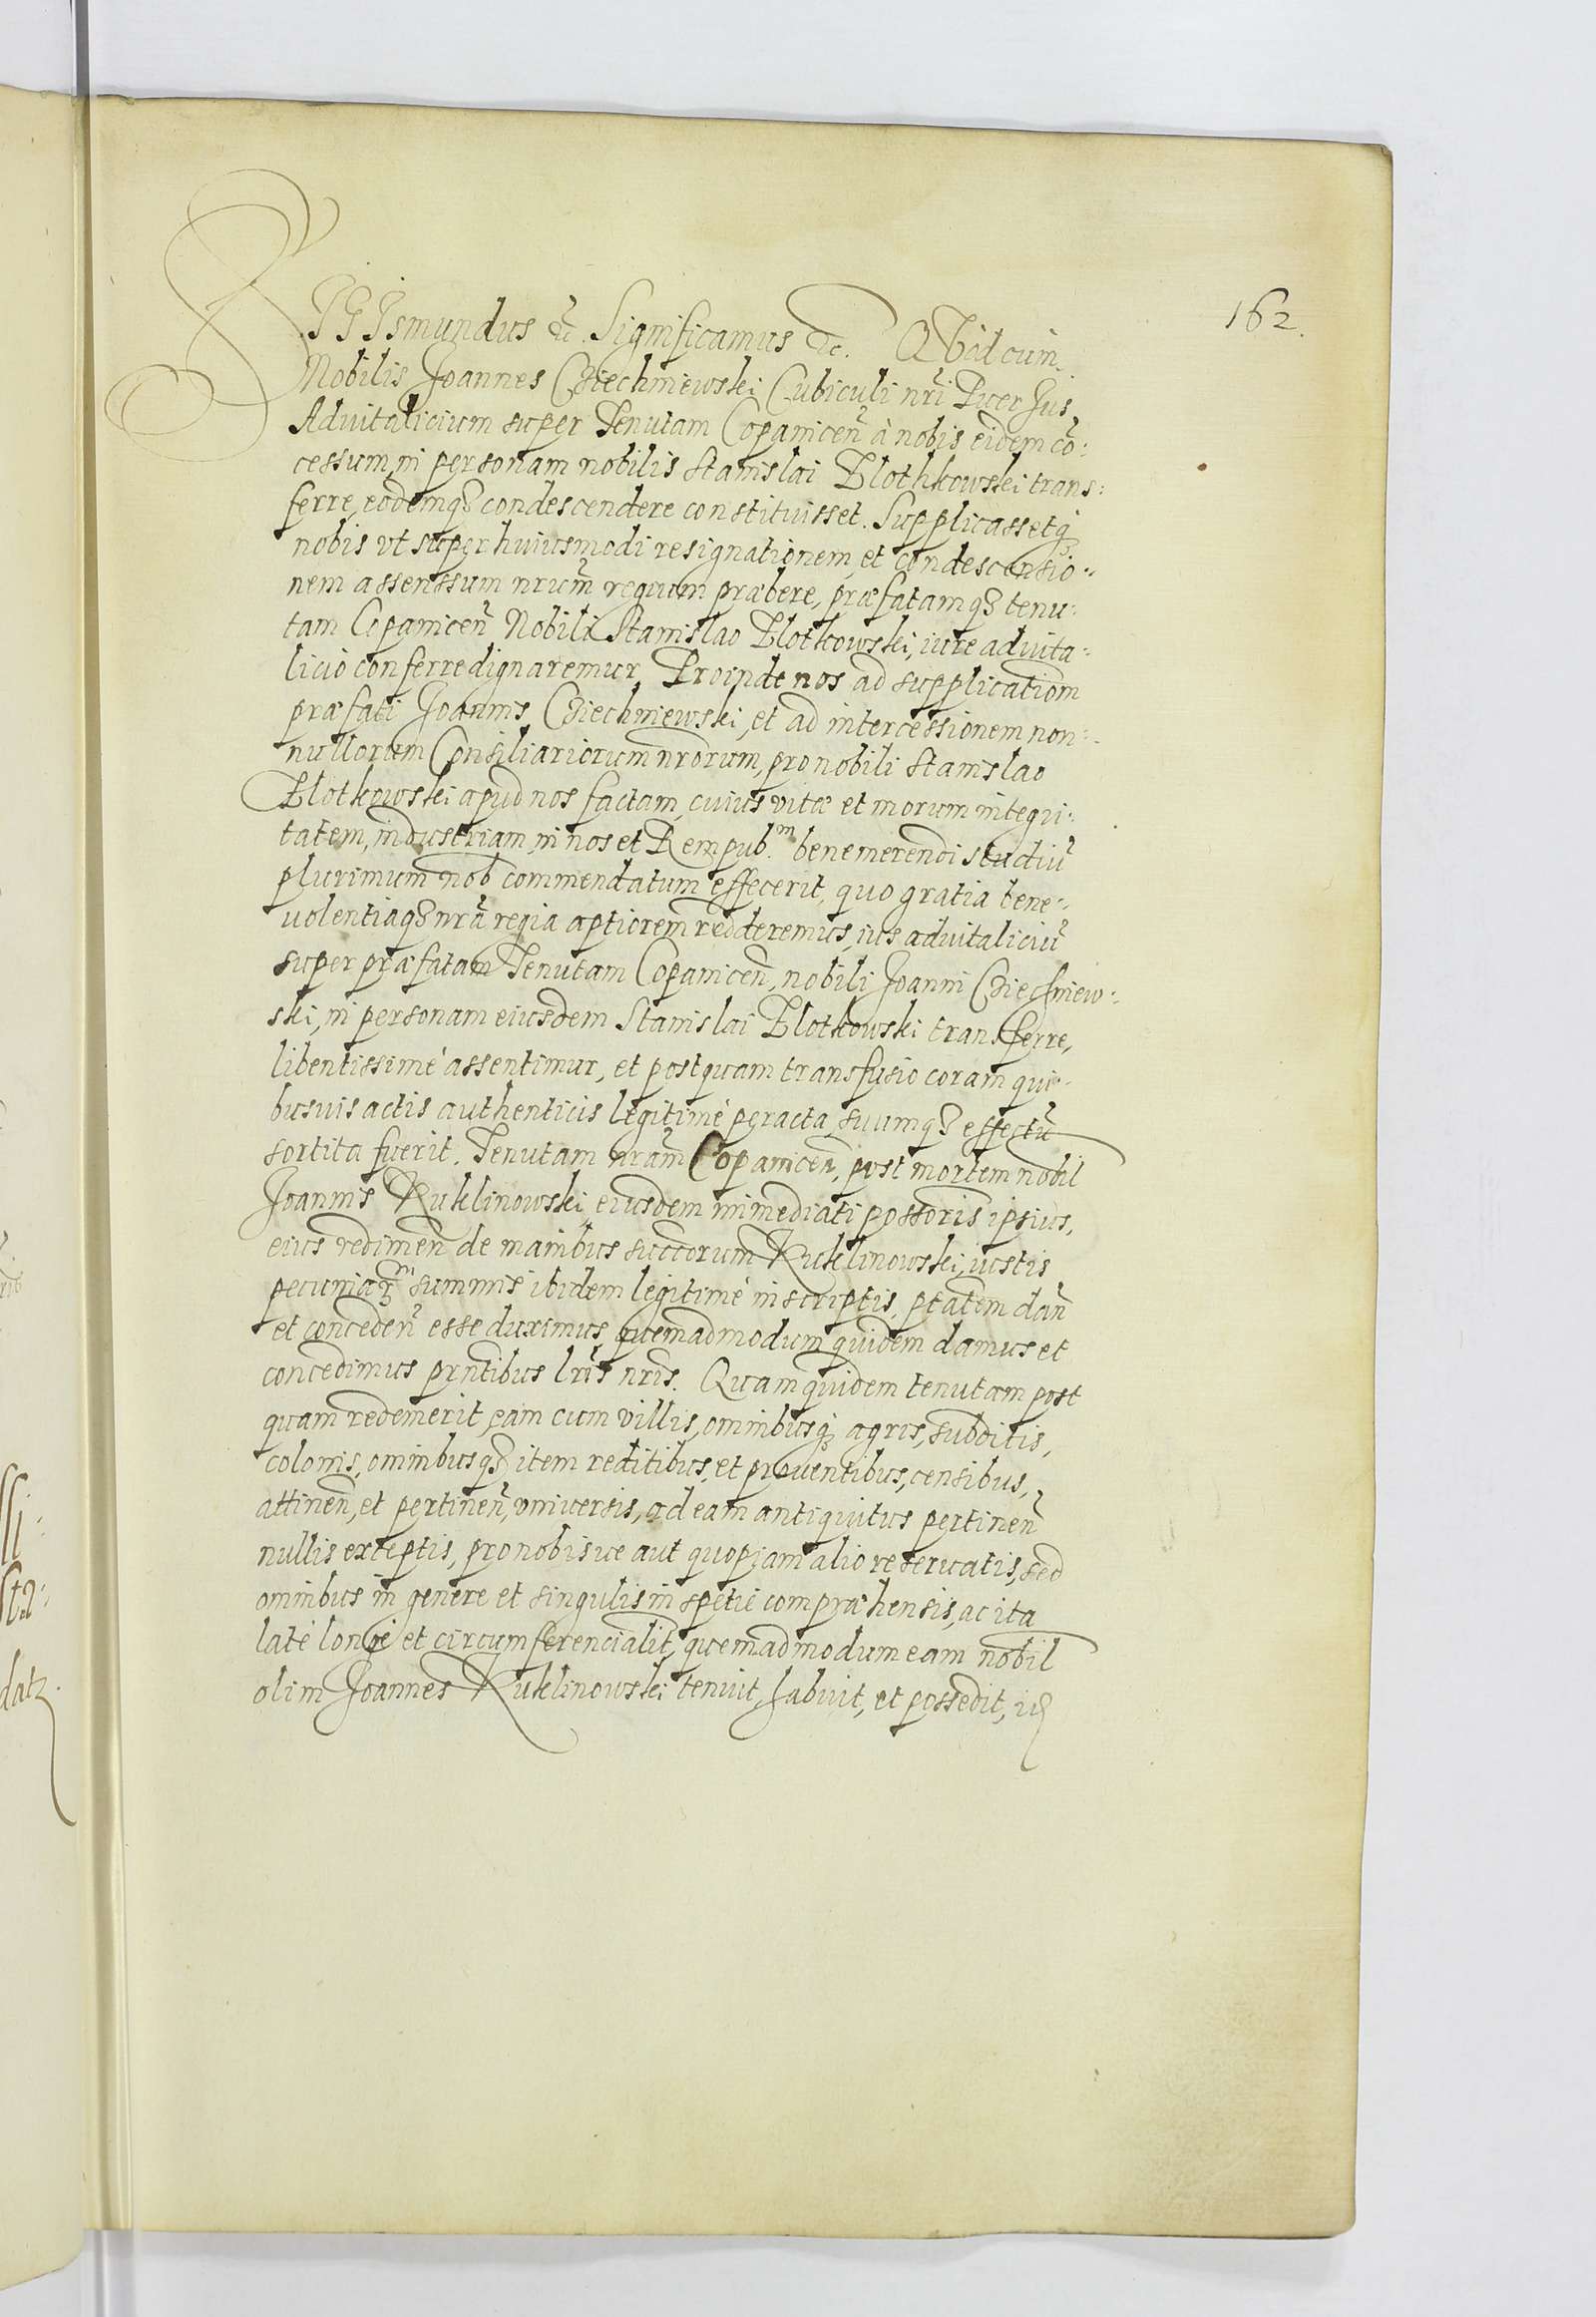 162.
SIGISmundus etc̃. Significamus etc. Quod cum
Nobilis Joannes Cziechniewski Cubiculi nr̃i Puer Jus
Advitalicium super Tenutam Copanicen̄ à nobis eidem cō:
cessum, in personam nobilis Stanislai Zlothkowski trans:
ferre, eodemq3 condescendere constituisset. Supplicassetq3
nobis vt super huiusmodi resignationem, et condescensio:
nem assenssum nr̃um regium præbere, præfatamq3 tenu:
tam Copanicen̄ Nobili Stanislao Zlotkowski, iure aduita:
licio conferre dignaremur, Proinde nos ad supplicatiom̄
præfati Joannis Cziechniewski, et ad intercessionem non:
nullorum Consiliariorum nr̄orum, pro nobili Stanislao
Zlotkowski apud nos factam, cuius vitæ et morum integri:
tatem, industriam, in nos et Rempub.m benemerendi studiũ
plurimum nob̄ commendatum effecerit, quo gratia bene:
uolentiaq3 nr̃a regia aptiorem redderemus, ius aduitaliciũ
super præfatam Tenutam Copanicen̄, nobili Joanni Cziechniew:
ski, in personam eiusdem Stanislai Zlotkowski transferre,
libentissimè assentimur, et postquam transfusio coram qui:
busuis actis authenticis legitimè peracta, suumq3 effectũ
sortita fuerit. Tenutam nr̃am Copanicen̄, post mortem nobil̄
Joannis Kuklinowski, eiusdem immediati poss̄oris ipsius,
eius redimen̄ de manibus succ̄orum Kuklinowski, iustis
pecuniar3 summis ibidem legitimè inscriptis, p̄tatem dan̄
et conceden̄ esse duximus, quemadmodum quidem damus et
concedimus pr̄ntibus lr̃is nr̃is. Quam quidem tenutam post
quam redemerit, eam cum villis, omnibusq3 agris, subditis,
colonis, omnibusq3 item reditibus, et prouentibus, censibus,
attinen̄, et pertinen̄, vniuersis, ad eam antiquitus pertinen̄
nullis exceptis, pro nobisue aut quopiam alio reseruatis, sed
omnibus in genere et singulis in spetie compræhensis, ac ita
latè longè et circumferencialit̄, quemadmodum eam nobil̄
olim Joannes Kuklinowski tenuit, habuit, et possedit,